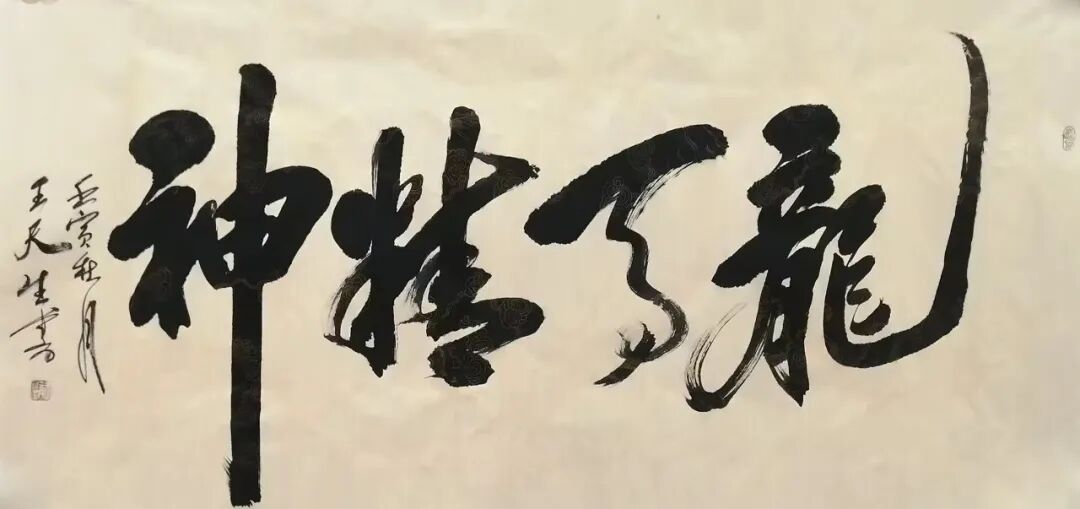 龍馬精神
壬寅秋月
王天生書